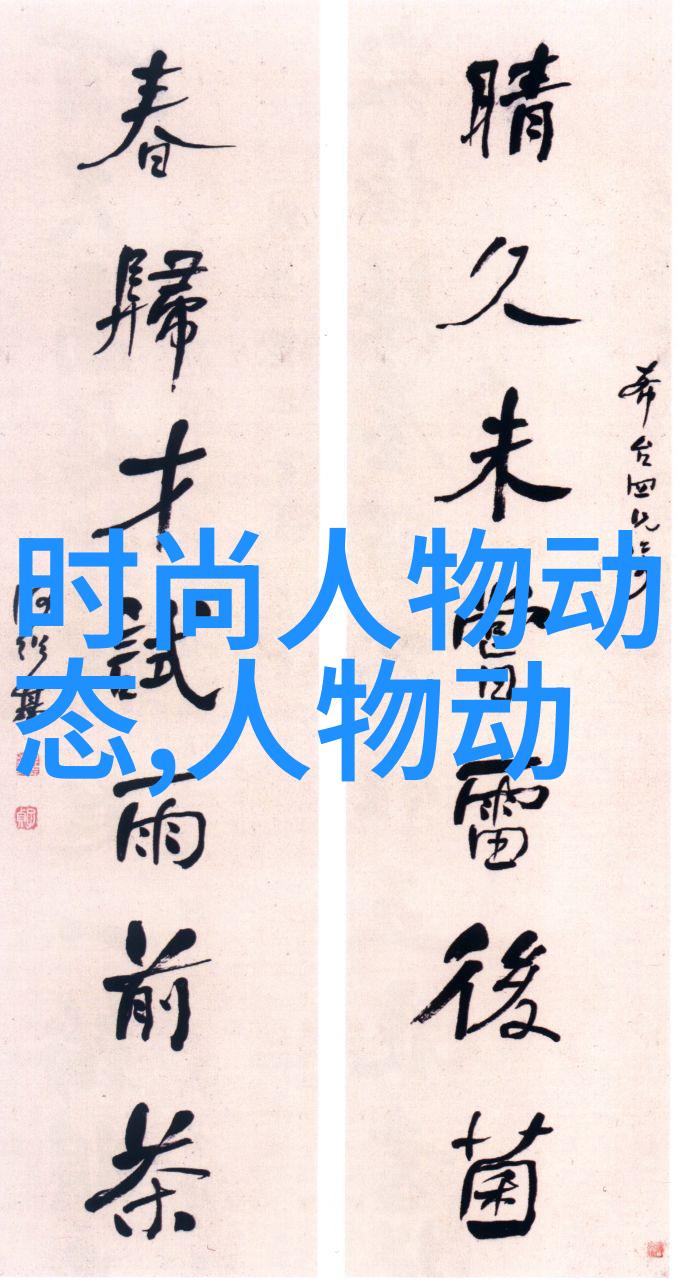 晴久未嘗雷後菌
春歸才試雨前茶
时尚人物动
态,人物动